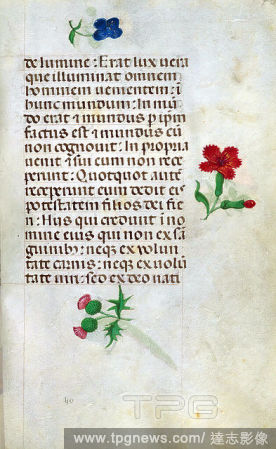 de lumine : Erat lux uera
que illuminat omnem
hominem uenientem i
hunc mundum : In mū
do erat ⁊ mundus p ip̄m
factus est ⁊ mundus eū
non cognouit : In propria
uenit ⁊ sui eum non rece
perunt : Quotquot autē
receperunt eum dedit eis
potestatem filios dei fie
ri : Hiis qui credunt ī no
mine eius qui non ex sā
guinibꝫ : neqꝫ ex volun
tate carnis : neqꝫ ex volū
tate uiri : sed ex deo nati
40
TPG
www.tpgnews.com/ 達志影像